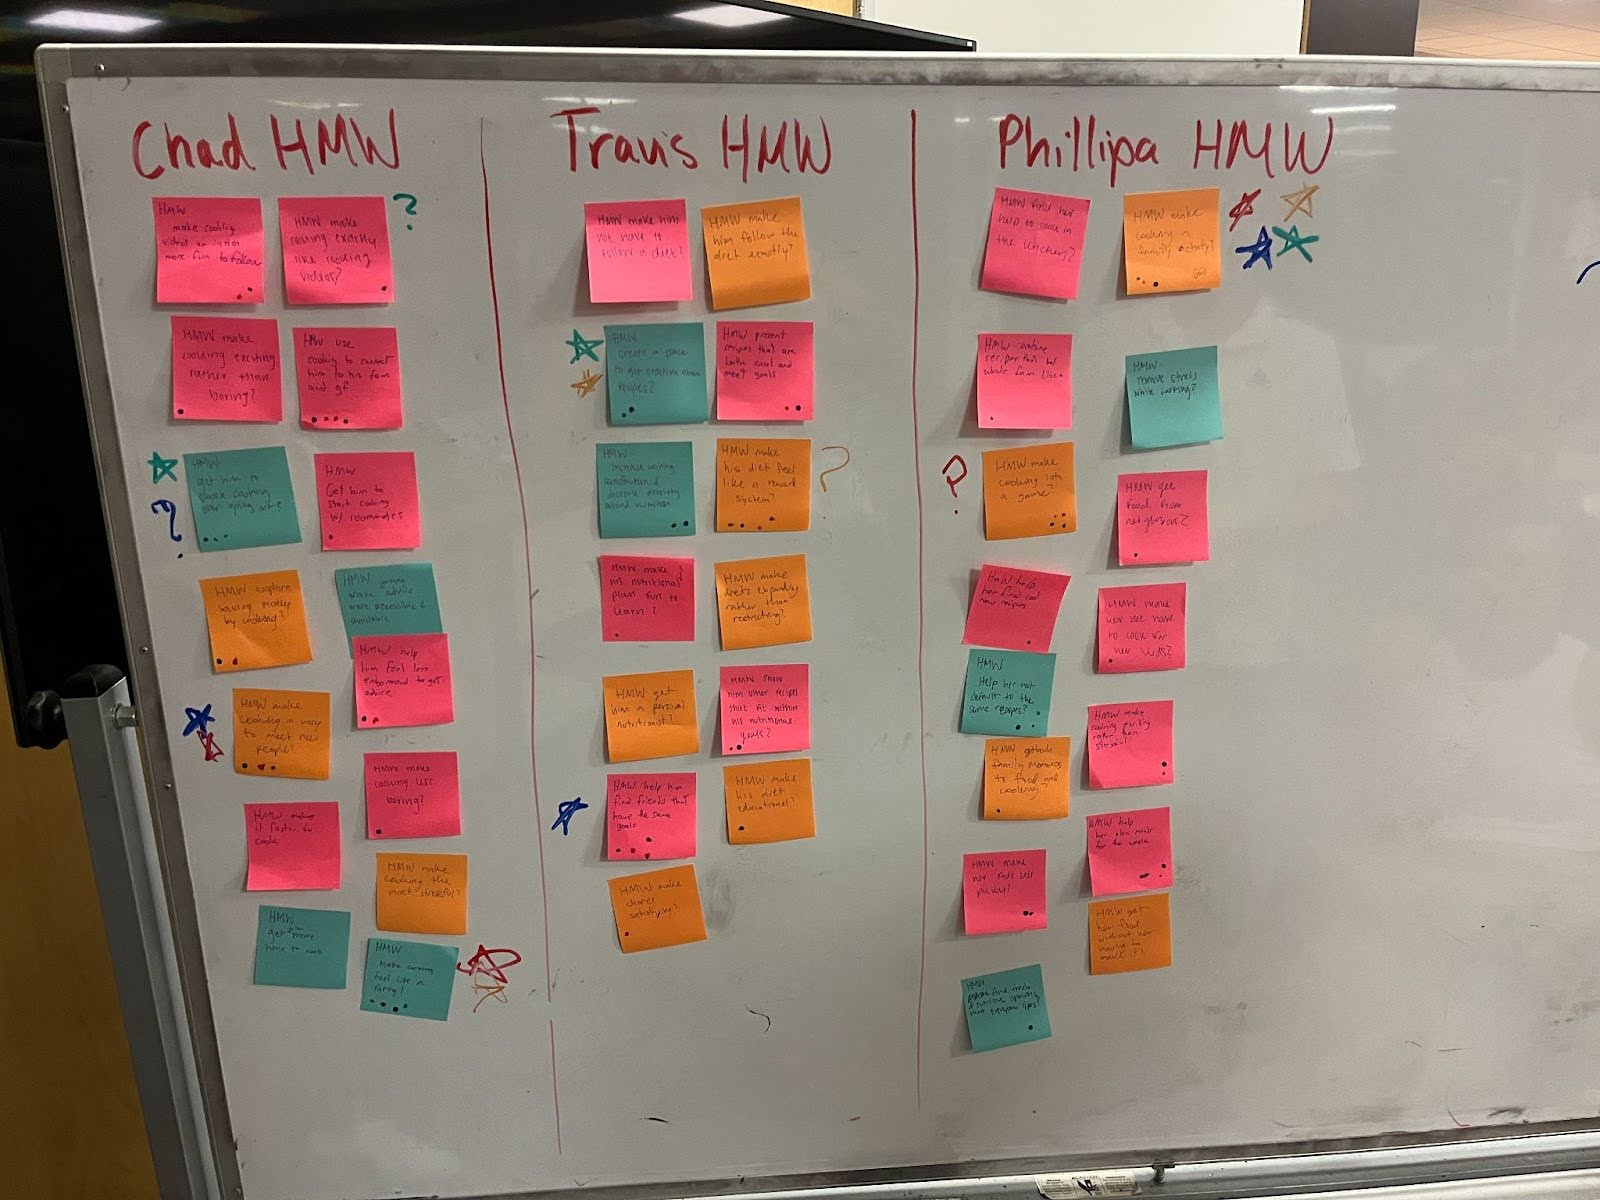 Chad HMW
HMW
make cooking
videos
more fun to follow
HMW make
cooking exactly
like cooking
videos?
?
HMW make
cooking exciting
rather than
boring?
HMW use
cooking to connect
him to his fam
and gf
HMW
get him to
choose cooking
over
?
HMW
Get him to
start cooking
w/ roommates
HMW explore
saving money
by cooking?
HMW cooking
make advice
more accessible &
available
HMW help
him feel less
embarrassed to get
advice
HMW make
cooking a way
to meet new
people?
HMW make
cooking less
boring?
HMW make
it faster to
cook
HMW make
cooking the
most stressful?
HMW
get him more
time to cook
HMW
Make cooking
feel like a
Party!
Travis HMW
HMW make him
not have to
follow a diet?
HMW make
him follow the
diet exactly?
HMW
create a space
to get creative about
recipes?
HMW present
recipes that are
both cool and
meet goals
HMW
increase cooking
decrease anxiety
around nutrition
HMW make
his diet feel
like a reward
system?
?
HMW make
his nutritional
plan fun to
learn?
HMW make
diets expanding
rather than
restricting?
HMW get
him a personal
nutritionist?
HMW show
him other recipes
that fit within
his nutritional
goals?
HMW help him
find friends that
have the same
goals
HMW make
his diet
educational?
HMW make
chores
satisfying?
Phillipa HMW
HMW find her
help to cook in
the kitchen?
HMW make
cooking a
family activity?
HMW combine
recipes that her
whole fam likes
HMW
remove stress
while cooking?
?
HMW make
cooking into
a game?
HMW get
food from
neighbors?
HMW help
her find cool
new recipes
HMW make
her not have
to cook for
her kids?
HMW
Help her not
default to the
same recipes?
HMW make
cooking exciting
rather than
stressful
HMW
family memories
to food and
cooking?
HMW help
her plan meals
for the week
HMW make
her kids less
picky?
HMW get
her food
without her
having to
make it?
HMW
find fresh
options
that everyone likes?